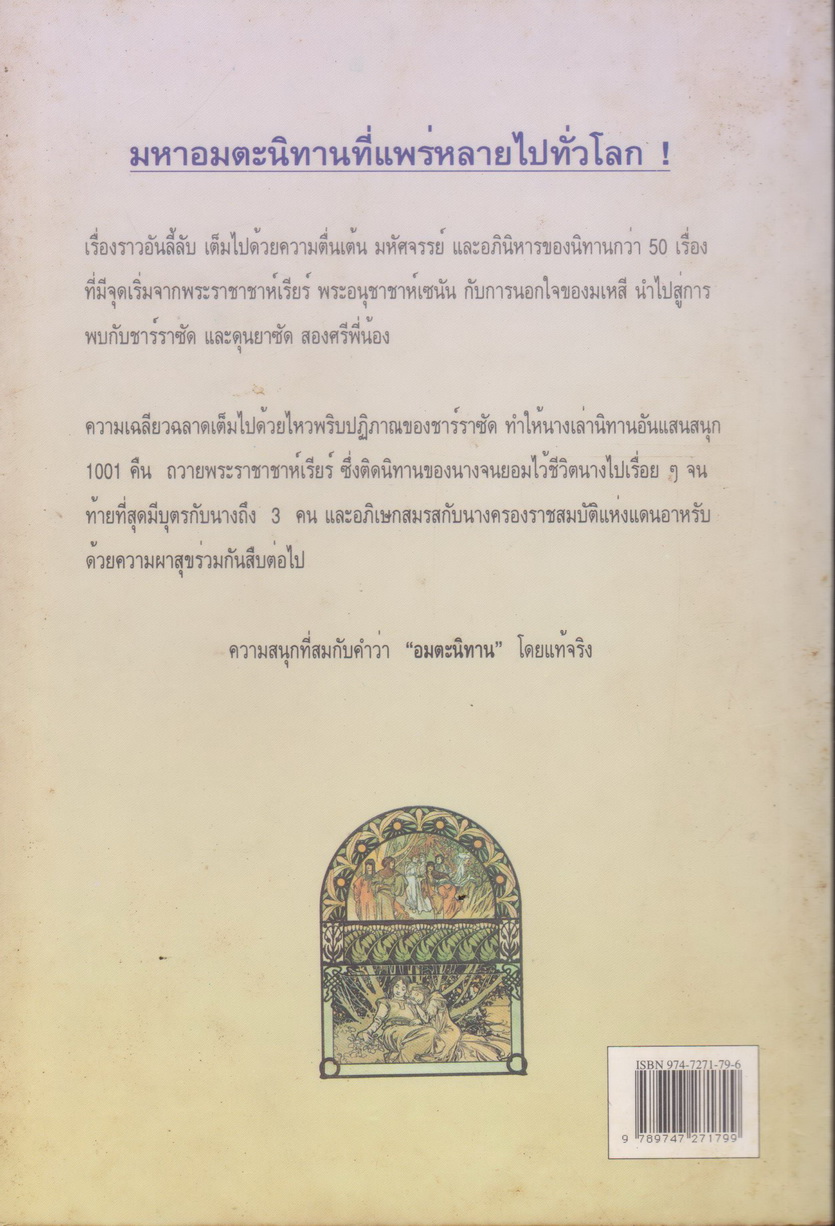 มหาอมตะนิทานที่แพร่หลายไปทั่วโลก !
เรื่องราวอันลี้ลับ เต็มไปด้วยความตื่นเต้น มหัศจรรย์ และอภินิหารของนิทานกว่า 50 เรื่อง
ที่มีจุดเริ่มจากพระราชาชาห์เรียร์ พระอนุชาชาห์เซนัน กับการนอกใจของมเหสี นำไปสู่การ
พบกับชาร์ราซัด และดุนยาซัด สองศรีพี่น้อง
ความเฉลียวฉลาดเต็มไปด้วยไหวพริบปฏิภาณของชาร์ราซัด ทำให้นางเล่านิทานอันแสนสนุก
1001 คืน ถวายพระราชาชาห์เรียร์ ซึ่งติดนิทานของนางจนยอมไว้ชีวิตนางไปเรื่อย ๆ จน
ท้ายที่สุดมีบุตรกับนางถึง 3 คน และอภิเษกสมรสกับนางครองราชสมบัติแห่งแดนอาหรับ
ด้วยความผาสุขร่วมกันสืบต่อไป
ความสนุกที่สมกับคำว่า “อมตะนิทาน” โดยแท้จริง
ISBN 974-7271-79-6
9 789747 271799